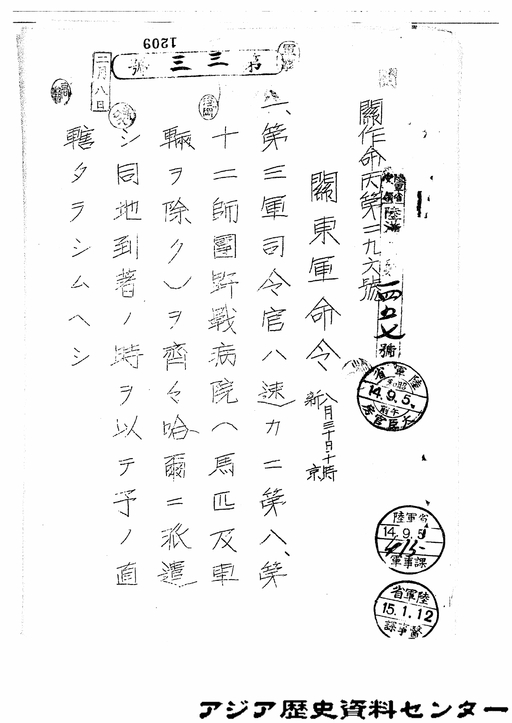 1209
第三三號
二月八日
關作命丙第一九六號
陸軍省
受領
陸滿
一四五七號
陸軍省
昭和
14.9.5
午前
大臣官房
陸軍省
14.9.5
軍事課
陸軍省
15.1.12
醫事課
關東軍命令
八月三十日十時
新京
一、第三軍司令官ハ速カニ第八、第
十二師團野戰病院(馬匹及車
輛ヲ除ク)ヲ齊々哈爾ニ派遣
シ同地到著ノ時ヲ以テ予ノ直
轄タラシムヘシ
アジア歴史資料センター